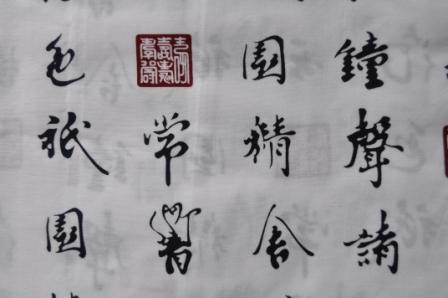 鐘聲諸
園精舍
常響
色祇園